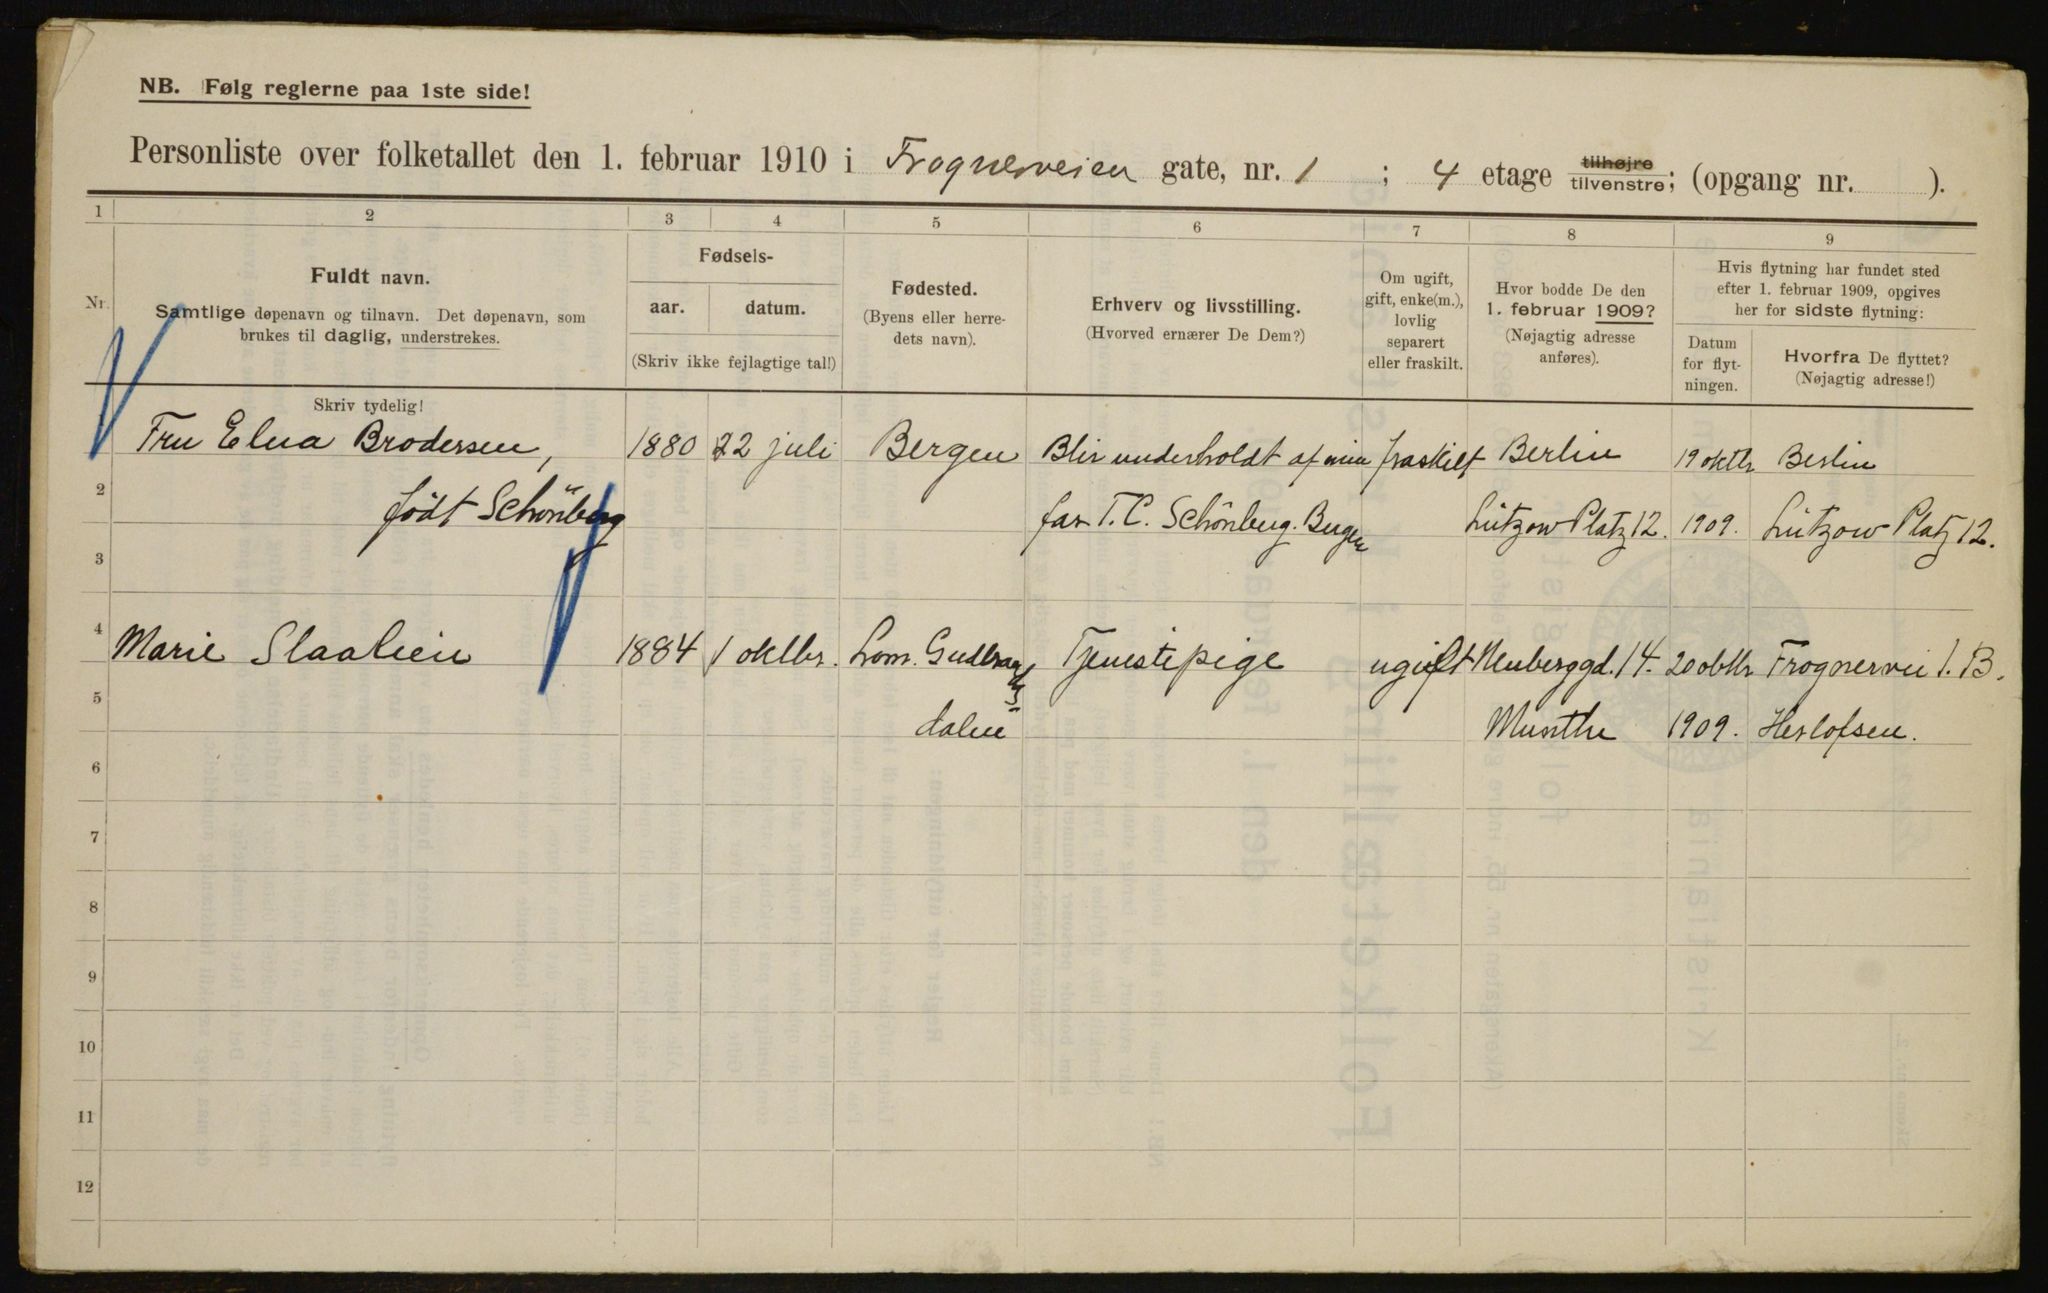 NB. Følg reglerne paa 1ste side!
Personliste over folketallet den 1. februar 1910 i Frognerveien gate, nr. 1 ; 4 etage tilhøjre tilvenstre; (opgang nr. ).
1 2 3 4 5 6 7 8 9
Nr.
Fuldt navn.
Samtlige døpenavn og tilnavn. Det døpenavn, som
brukes til daglig, understrekes.
Skriv tydelig!
Fødsels-
aar. datum.
(Skriv ikke fejlagtige tal!)
Fødested.
(Byens eller herre-
dets navn).
Erhverv og livsstilling.
(Hvorved ernærer De Dem?)
Om ugift,
gift, enke(m.),
lovlig
separert
eller fraskilt.
Hvor bodde De den
1. februar 1909?
(Nøjagtig adresse
anføres).
Hvis flytning har fundet sted
efter 1. februar 1909, opgives
her for sidste flytning:
Datum
for flyt-
ningen.
Hvorfra De flyttet?
(Nøjagtig adresse!)
Fru Elna Brodersen, 1880 22 juli Bergen Blir underholdt af min fraskilt Berlin 19 oktbr Berlin
2 født Schönberg far T. C. Schönberg. Bergen Lützow Platz 12. 1909. Lützow Platz 12.
3
4 Marie Slaalien 1884 1 oktbr. Lom. Gudbrands Tjenestepige ugift Neuberggd. 14. 20 oktbr Frognervei 1. B.
5 dalen Munthe 1909. Herlofsen.
6
7
8
9
10
11
12